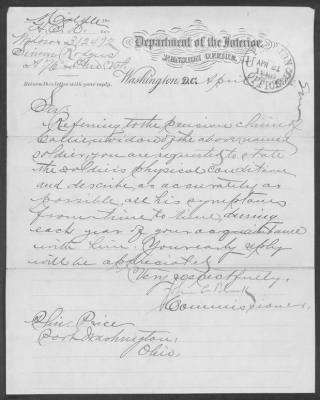 Department of the Interior,
PENSION OFFICE,
Widow 312492
Simon Rogers
Return this letter with your reply.
Washington, D.C. April
APR 21
OFFICE
Sir
Referring to the pension claim of
widow of the above named
soldier, you are requested to state
the soldier's physical condition
and describe, as accurately as
possible, all his symptoms
from time to time, during
each year of your acquaintance
with him. Your early reply
will be appreciated.
Very respectfully,
John C. Black
Commissioner.
Price
Port Washington,
Ohio.